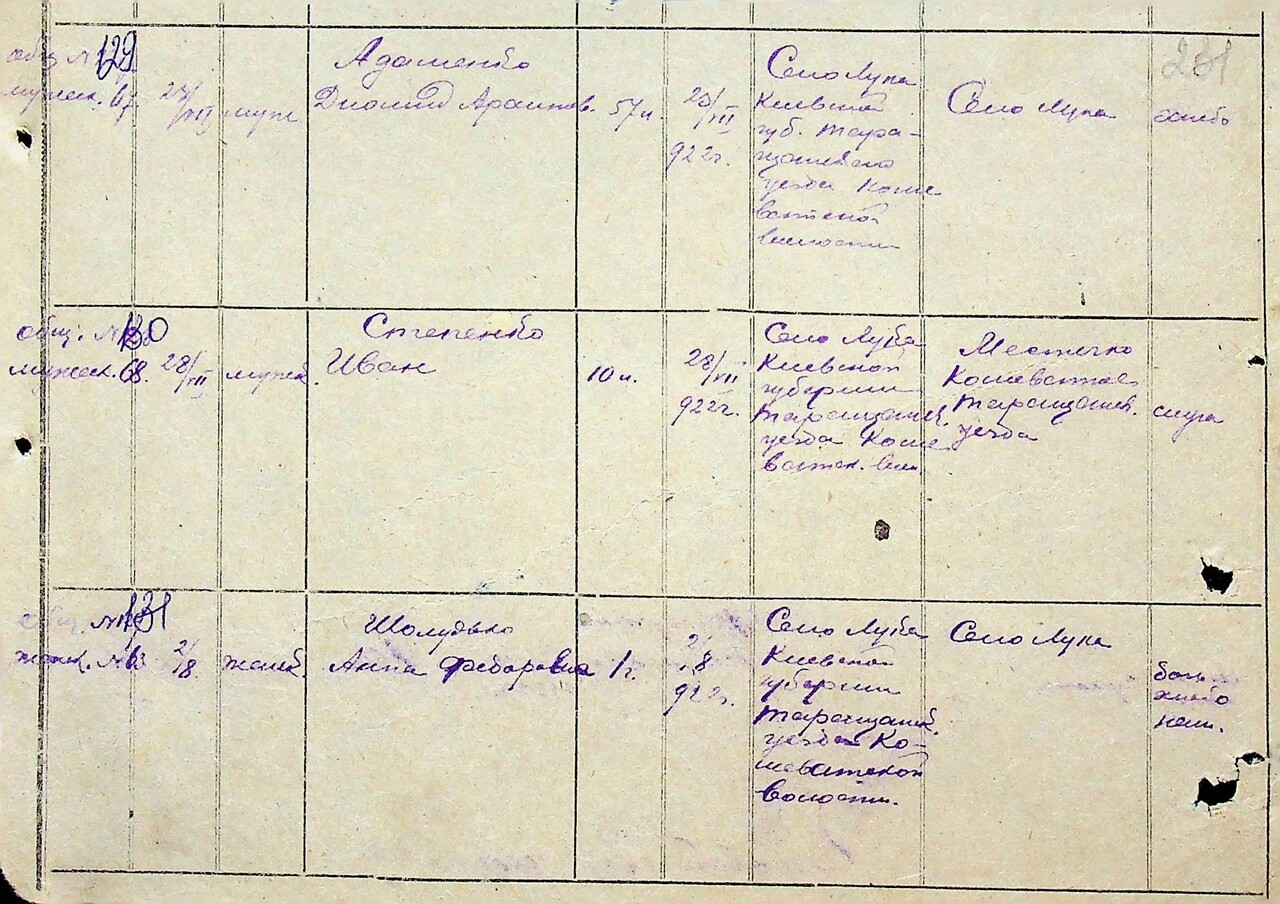 231
общ. № 129
мужеск. 67.
28/VII
мужс
Адаменко
Диомид
57 л.
28/VII
922г.
Село Лука
Киевской
губ. Тара-
щанского
уезда Коше
ватской
волости
Село Лука
хлебо
общ. № 130
мужеск. 68.
28/VII
мужск.
Степенко
Иван
10 л.
28/VII
922г.
Село Лука
Киевской
губернии
Таращанск.
уезда Коше
ватск. вол
Местечко
Кошеватое
Таращанск.
уезда
слуга
общ. № 131
женск. № 63
2/8.
женск.
Шолудько
Анна Федоровна
1 г.
2/8
922г.
Село Лука
Киевской
губернии
Таращанск.
уезда Ко-
шеватской
волости.
Село Лука
хлебо